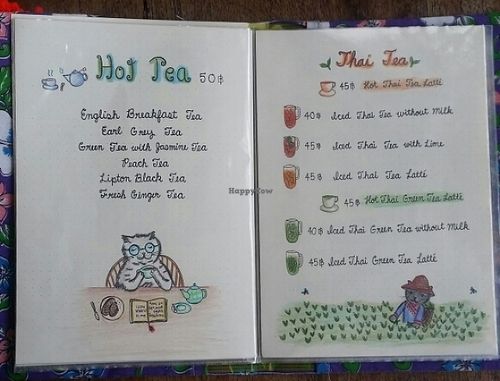 Hot Tea 50฿
English Breakfast Tea
Earl Grey Tea
Green Tea with Jasmine Tea
Peach Tea
Lipton Black Tea
Fresh Ginger Tea
HappyCow
Thai Tea
45฿ Hot Thai Tea Latté
40฿ Iced Thai Tea without Milk
45฿ Iced Thai Tea with Lime
45฿ Iced Thai Tea Latté
45฿ Hot Thai Green Tea Latté
40฿ Iced Thai Green Tea without Milk
45฿ Iced Thai Green Tea Latté